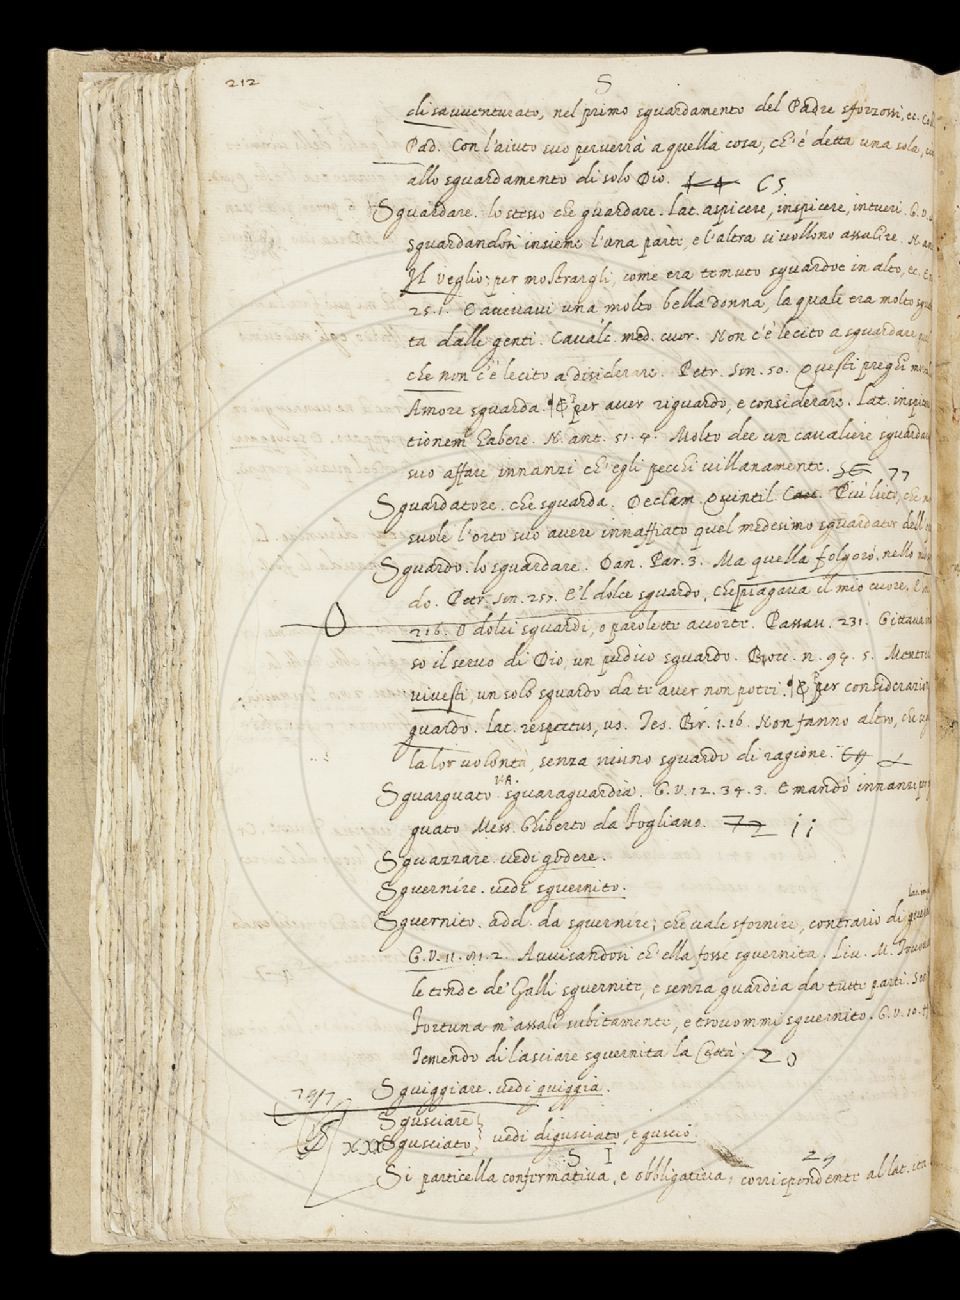 212
S
disavventurato, nel primo sguardamento del Padre sforzossi, ec. Coll.
Pad. Con l'aiuto suo perverrà a quella cosa, ch'è detta una sola,
allo sguardamento di solo Dio. 65
Sguardare. lo stesso che guardare. lat. aspicere, inspicere, intueri. G.V.
sguardandosi insieme l'una parte, e l'altra si vollono assalire. N. ant.
Il veglio; per mostrargli, come era temuto sguardoe in alto, ec. E
25.1. E avevavi una molto bella donna, la quale era molto
ta dalle genti. Cavalc. med. cuor. Non c'è lecito a sguardare
che non c'è lecito a disiderare. Petr. Son. 50. Questi preghi
Amore sguarda. ¶ E per aver riguardo, e considerare. Lat.
tionem habere. N. ant. 51.4. Molto dee un cavaliere sguardare
suo affare innanzi ch'egli pecchi villanamente. 77
Sguardatore. che sguarda. Declam. Quintil. Più lieto, che
suole l'orto suo avere innaffiato quel medesimo sguardator dell
Sguardo. lo sguardare. Dan. Par. 3. Ma quella folgorò nello
do. Petr. Son. 257. E'l dolce sguardo, che piagava il mio cuore.
216. O dolci sguardi, o parolette accorte. Passav. 231. Gittava
so il servo di Dio, un pudico sguardo. Bocc. n. 94. 5. Mentre
vivesti, un solo sguardo da te aver non potei. ¶ E per considerazione
guardo. lat. respectus, us. Tes. Br. 1.16. Non fanno altro, che
la lor volontà, senza niuno sguardo di ragione.
Sguarguato. VA. sguaraguardia. G.V. 12. 34. 3. E mandò innanzi
guato Mess. Ghiberto da Fogliano. 72 ii
Sguazzare. vedi godere.
Sguernire. vedi sguernito.
Sguernito. add. da sguernire; che vale sfornire, contrario di
G.V. 11. 81. 2. Avvisandosi ch'ella fosse sguernita. Liv. M. Trovaro
le tende de' Galli sguernite, e senza guardia da tutte parti.
Fortuna m'assalì subitamente, e trovommi sguernito. G.V. 10.
Temendo di lasciare sguernita la Città. 20
Sguiggiare. vedi guiggia.
Sgusciare
XXX Sgusciato, vedi digusciato, e guscio
S I
29
Si particella confermativa, e obbligativa, corrispondente al lat. ita